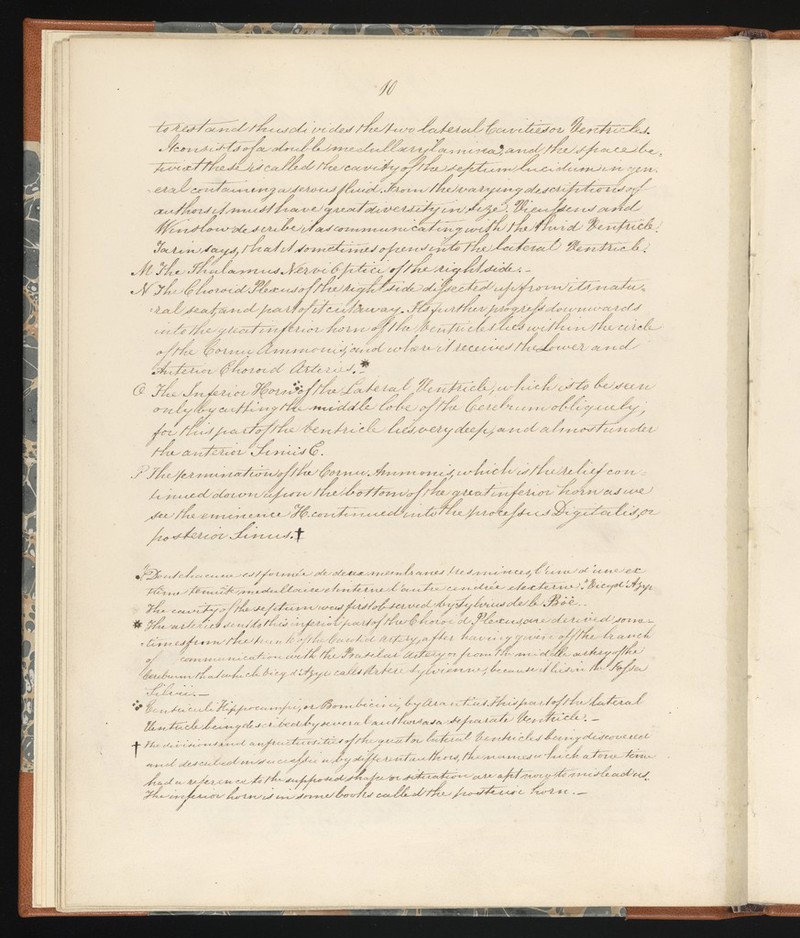 10
to rest and thus divides the two lateral Cavities or Ventricles.
It consists of a double medullary Lamina, and the space be,
twixt these is called the cavity of the septum lucidum in gen,
eral containing a serous fluid. From the varying descriptions of
authors it must have great diversity in size. Vieussens and
Winslow describe it as communicating with the third Ventricle.
Tarin says, that it sometimes opens into the lateral Ventricle.
M The Thalamus Nervi Optici of the right side. -
N The Choroid Plexus of the right side dissected up from its natu,
ral seat and part of it cut away. Its further progress downwards
into the great inferior horn of the Ventricle lies within the circle
of the Cornu Ammonis, and where it receives the Lower and
Anterior Choroid Arteries. *-
O The Inferior Horn of the Lateral Ventricle, which is to be seen
only by cutting the middle lobe of the Cerebrum obliquely,
for this part of the Ventricle lies very deep, and almost under
the anterior Sinus E.
P The termination of the Cornu Ammonis, which is the relief con-
tinued down upon the bottom of the great inferior horn as we
see the eminence H. continued into the processus Digitalis, or
posterior Sinus. †
Dont chacune est formée de deux membranes tres minces, l'une d'une ex
tême tenuité, medullaire et interne d'autre cendrée et externe". Vicq d'Azyr
The cavity of the septum was first observed by Sylvius de le Böe.
* The arteries sent to this inferior part of the Choroid Plexus are derived some-
times from the trunk of the Carotid Artery, after having given off the branch
of communication with the Basilar Artery or from the middle artery of the
Cerebrum that which Vicq d'Azyr calls Artere Sylvienne, because it lies in the Fossa
Silvii. -
Ventriculi Hippocampi, or Bombicini, by Arantius this part of the Lateral
Ventricle being described by several authors as a separate Ventricle. -
† The divisions and anfractuosities of the greater lateral Ventricles being discovered
and described in succession by different authors, the names which at one time
had a reference to the supposed shape or situation are apt now to mislead us.
The inferior horn is in some books called the posterior horn. -